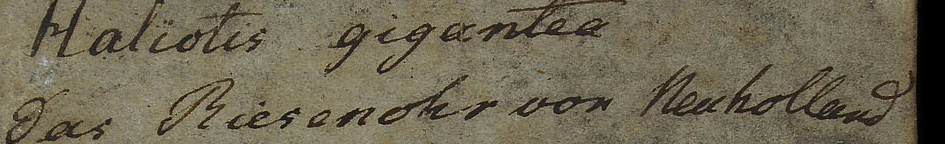 Haliotis gigantea
Das Riesenohr von Neuholland